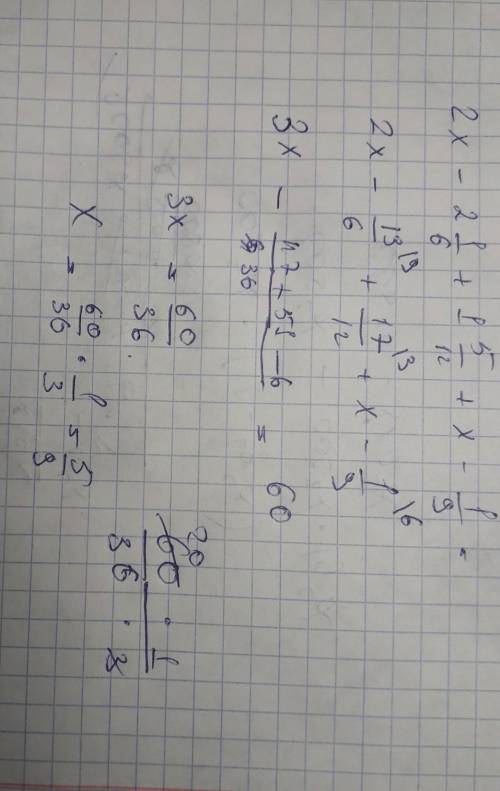 2x - 2 1/6 + 1 5/12 + x - 1/9 =
2x - 13/6 \13 + 17/12 \3 + x - 1/9 \6
3x - (17 + 51 - 6)/36 = 60
3x = 60/36
x = 60/36 · 1/3 = 5/9
20
60 · 1
36 · 3